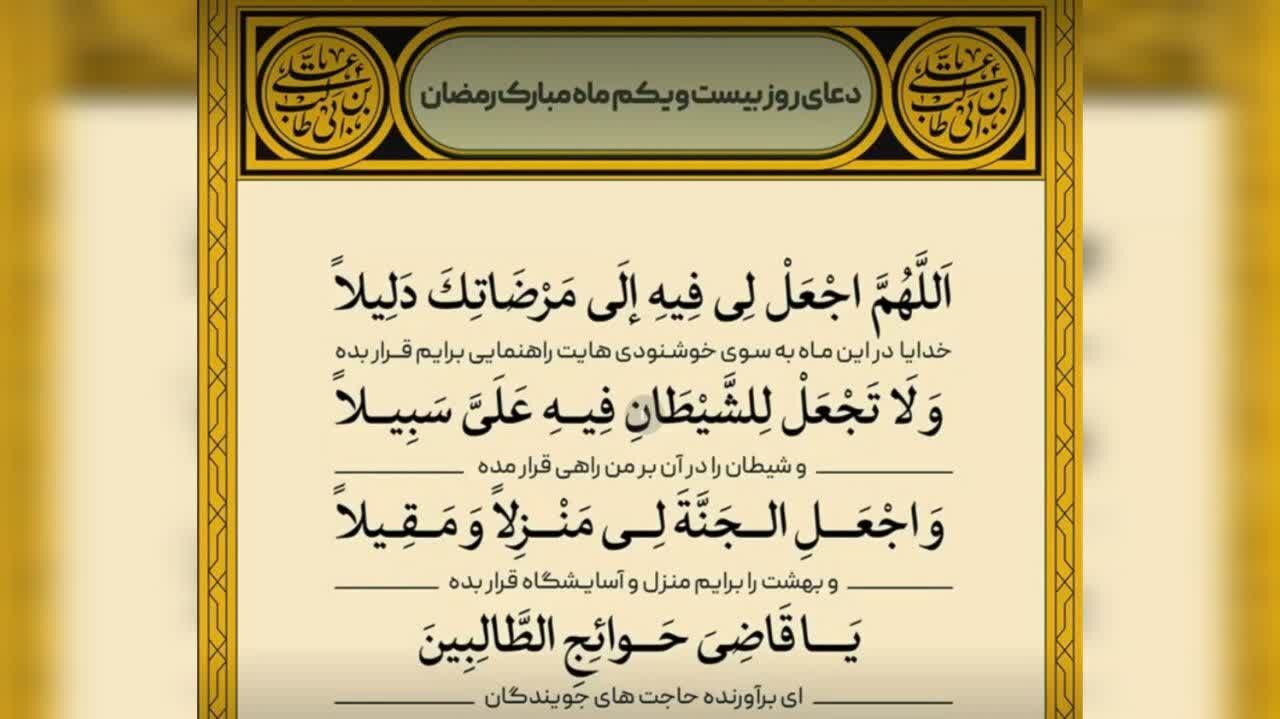 علی بن ابی طالب
علی بن ابی طالب
دعای روز بیست و یکم ماه مبارک رمضان
اَللَّهُمَّ اجْعَلْ لِی فِیهِ إِلَی مَرْضَاتِكَ دَلِیلاً
خدایا در این ماه به سوی خوشنودی هایت راهنمایی برایم قرار بده
وَ لَا تَجْعَلْ لِلشَّیْطَانِ فِیهِ عَلَیَّ سَبِیلاً
و شیطان را در آن بر من راهی قرار مده
وَ اجْعَلِ الجَنَّةَ لِی مَنْزِلاً وَ مَقِیلاً
و بهشت را برایم منزل و آسایشگاه قرار بده
یَا قَاضِیَ حَوائِجِ الطَّالِبِینَ
ای برآورنده حاجت های جویندگان